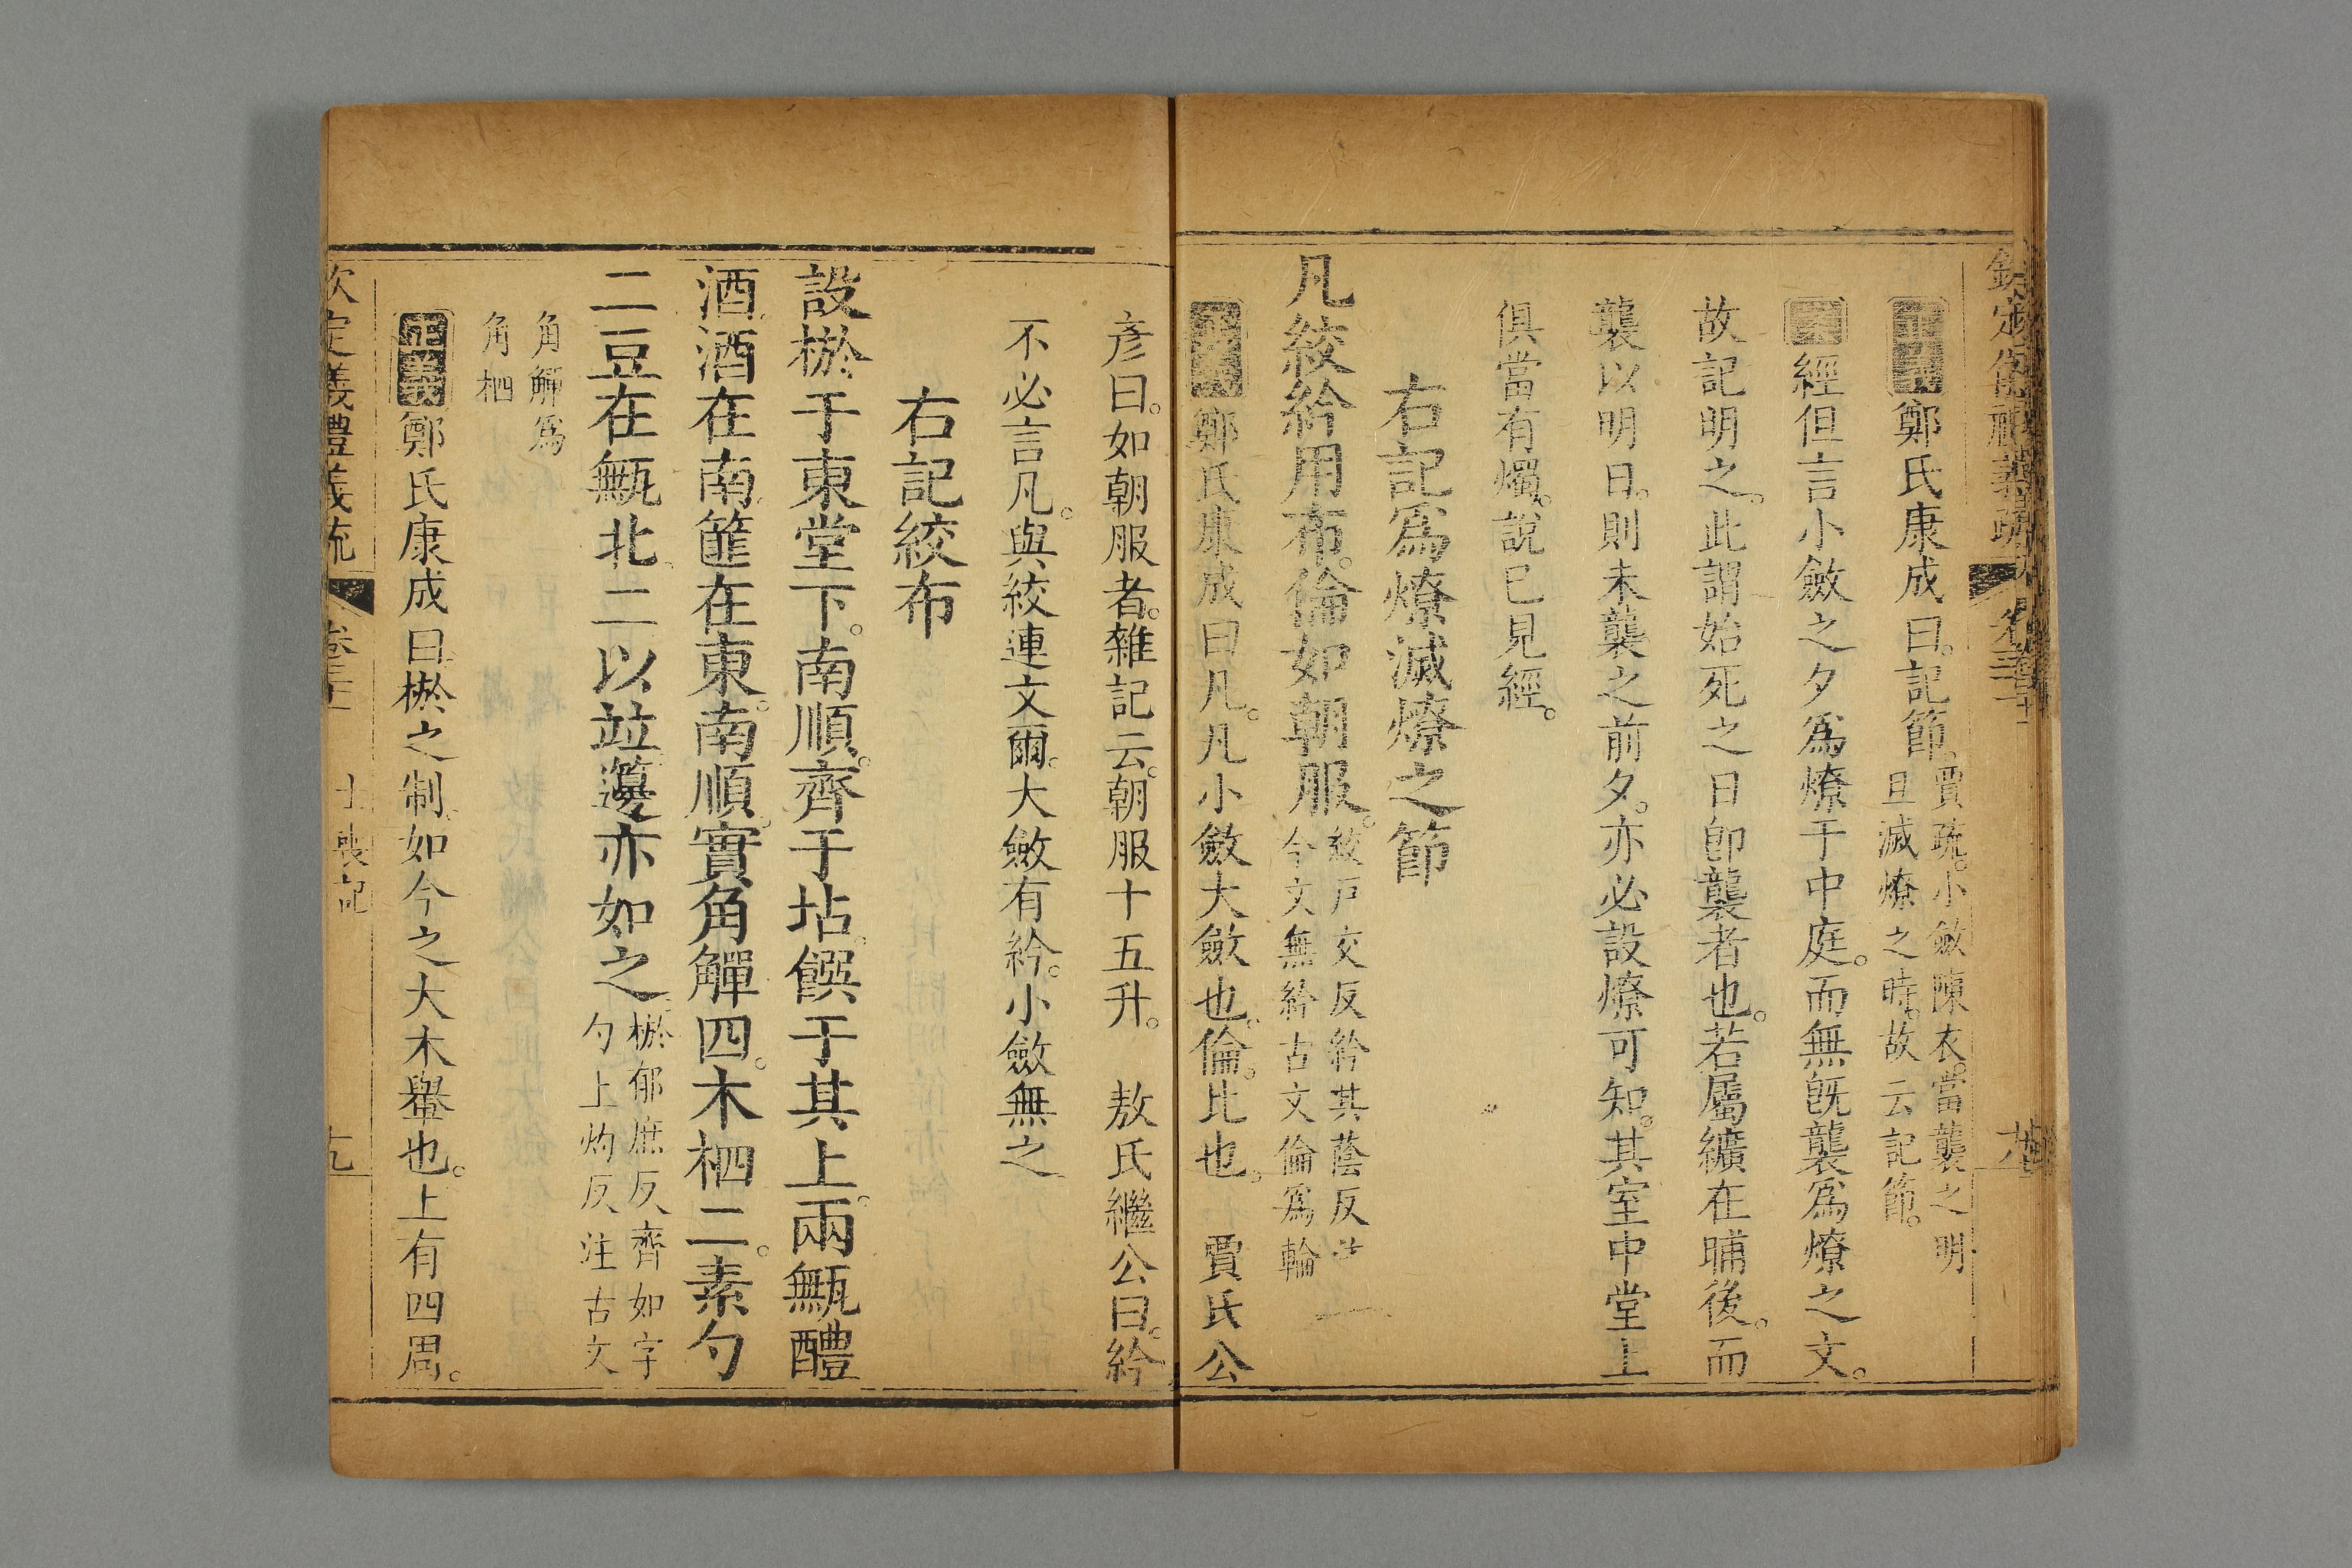 欽定儀禮義疏 卷三十
正義鄭氏康成曰。記節。賈疏。小斂陳衣。當襲之明
旦滅燎之時。故云記節。
案經但言小斂之夕爲燎于中庭。而無旣襲爲燎之文。
故記明之。此謂始死之日卽襲者也。若屬纊在晡後。而
襲以明日。則未襲之前夕。亦必設燎可知。其室中堂上
俱當有燭。說已見經。
右記爲燎滅燎之節
凡絞紟用布。倫如朝服。絞戶交反紟其蔭反注
今文無紟古文倫爲輪
正義鄭氏康成曰凡。凡小斂大斂也。倫。比也。 賈氏公
彥曰。如朝服者。雜記云。朝服十五升。 敖氏繼公曰。紟
不必言凡。與絞連文爾。大斂有紟。小斂無之
右記絞布
設棜于東堂下。南順。齊于坫。饌于其上。兩甒醴
酒酒在南篚在東。南順。實角觶四。木柶二。素勺
二豆在甒北。二以竝籩亦如之。棜郁庶反齊如字
勺上灼反注古文
角觶爲
角柶
正義鄭氏康成曰。棜之制。如今之大木轝也。上有四周。
欽定義禮義疏 卷三十 士喪記